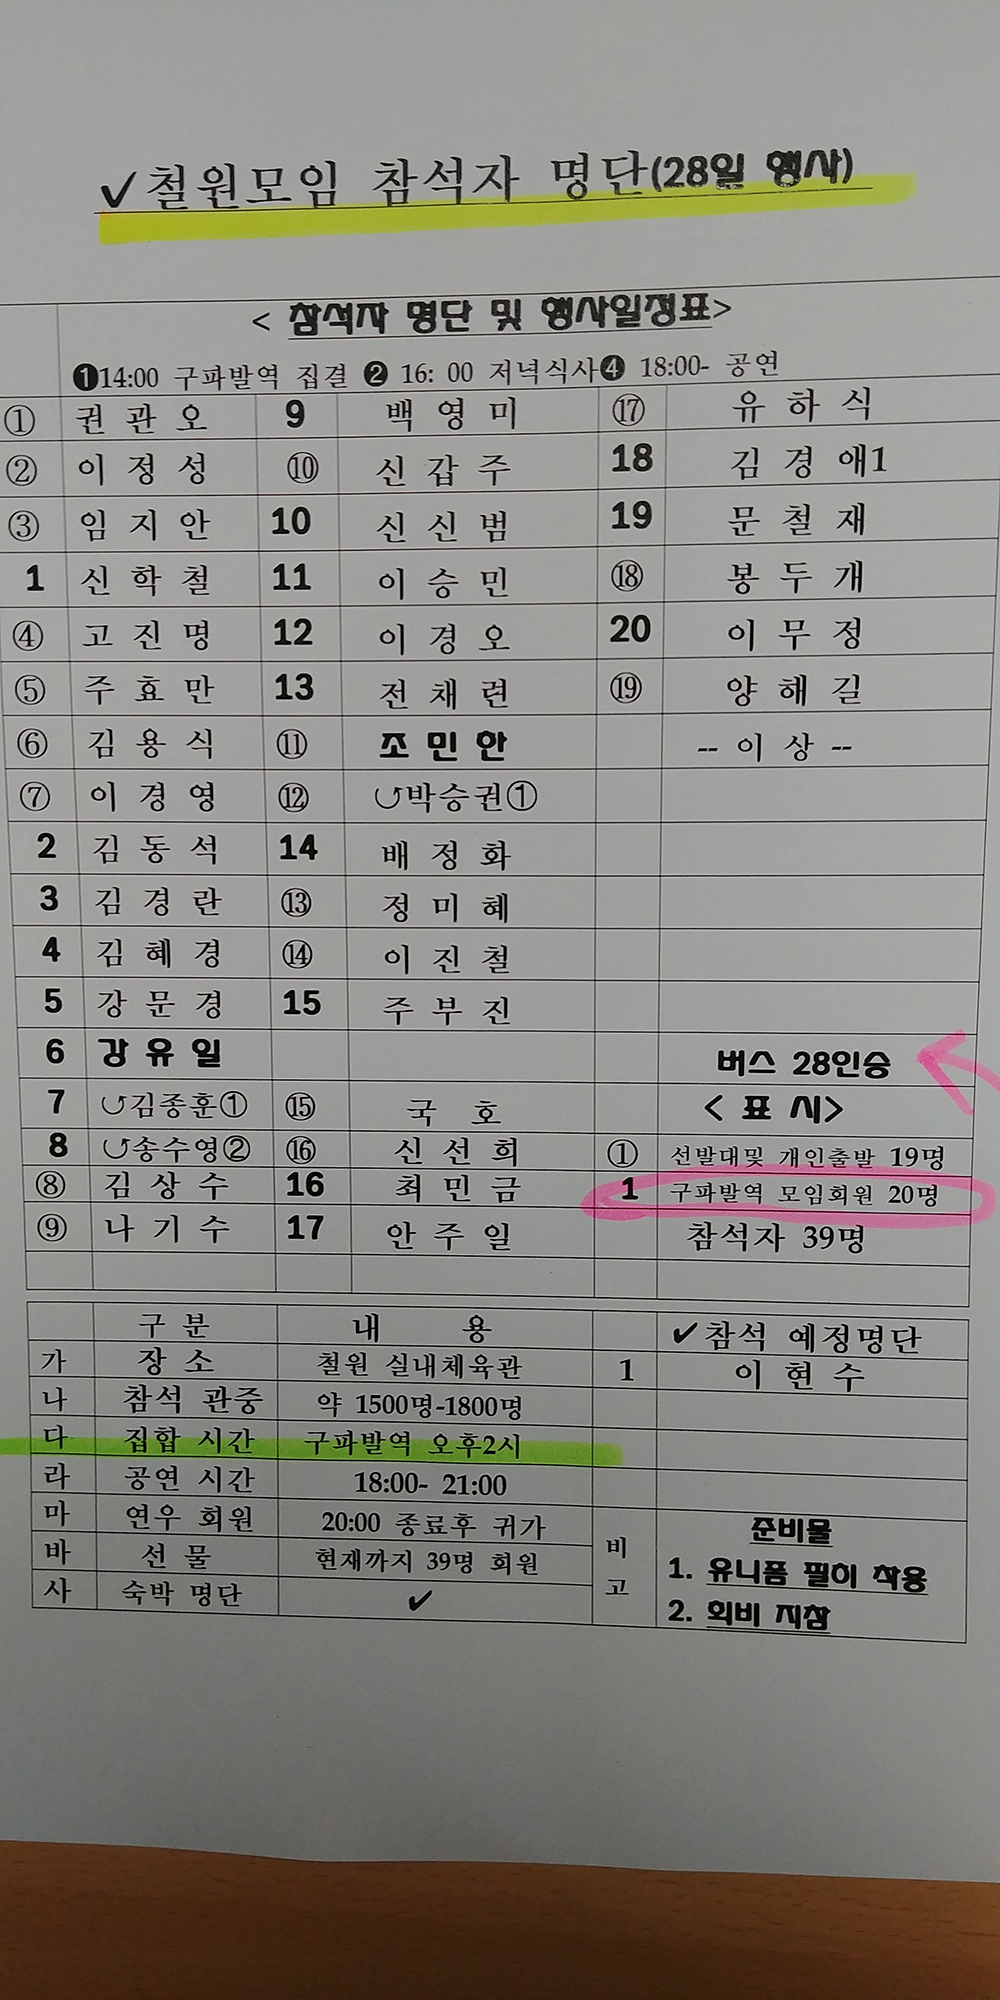 ✓철원모임 참석자 명단(28일 행사)
< 참석자 명단 및 행사일정표>
❶14:00 구파발역 집결 ❷ 16: 00 저녁식사❹ 18:00- 공연
① 권 관 오 9 백 영 미 ⑰ 유 하 식
② 이 정 성 ⑩ 신 갑 주 18 김 경 애1
③ 임 지 안 10 신 신 범 19 문 철 재
1 신 학 철 11 이 승 민 ⑱ 봉 두 개
④ 고 진 명 12 이 경 오 20 이 무 정
⑤ 주 효 만 13 전 채 련 ⑲ 양 해 길
⑥ 김 용 식 ⑪ 조 민 한 -- 이 상 --
⑦ 이 경 영 ⑫ ↺박승권①
2 김 동 석 14 배 정 화
3 김 경 란 ⑬ 정 미 혜
4 김 혜 경 ⑭ 이 진 철
5 강 문 경 15 주 부 진
6 강 유 일 버스 28인승
7 ↺김종훈① ⑮ 국 호 < 표 시>
8 ↺송수영② ⑯ 신 선 희 ① 선발대및 개인출발 19명
⑧ 김 상 수 16 최 민 금 1 구파발역 모임회원 20명
⑨ 나 기 수 17 안 주 일 참석자 39명
구 분 내 용 ✔참석 예정명단
가 장 소 철원 실내체육관 1 이 현 수
나 참석 관중 약 1500명-1800명
다 집합 시간 구파발역 오후2시
라 공연 시간 18:00- 21:00
마 연우 회원 20:00 종료후 귀가 비고 준비물
바 선 물 현재까지 39명 회원 1. 유니폼 필히 착용
사 숙박 명단 ✔ 2. 회비 지참